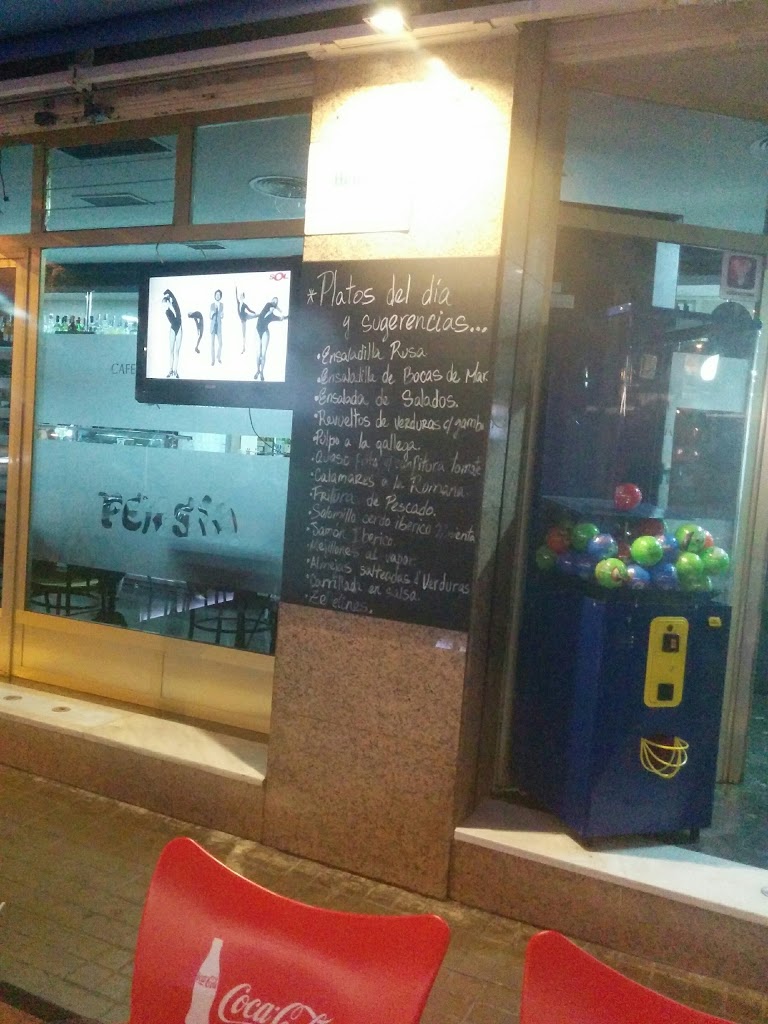 SOL
*Platos del día
y sugerencias...
•Ensaladilla Rusa
•Ensaladilla de Bocas de Mar
•Ensalada de Salados.
•Revueltos de verduras c/gamba
•Pulpo a la gallega.
•Queso frito c/ confitura tomate
•Calamares a la Romana
•Fritura de Pescado.
•Solomillo cerdo ibérico
•Jamón Ibérico.
•Mejillones al vapor.
•Almejas salteadas Verduras
•Carrillada en salsa.
CAFE
Coca-Cola